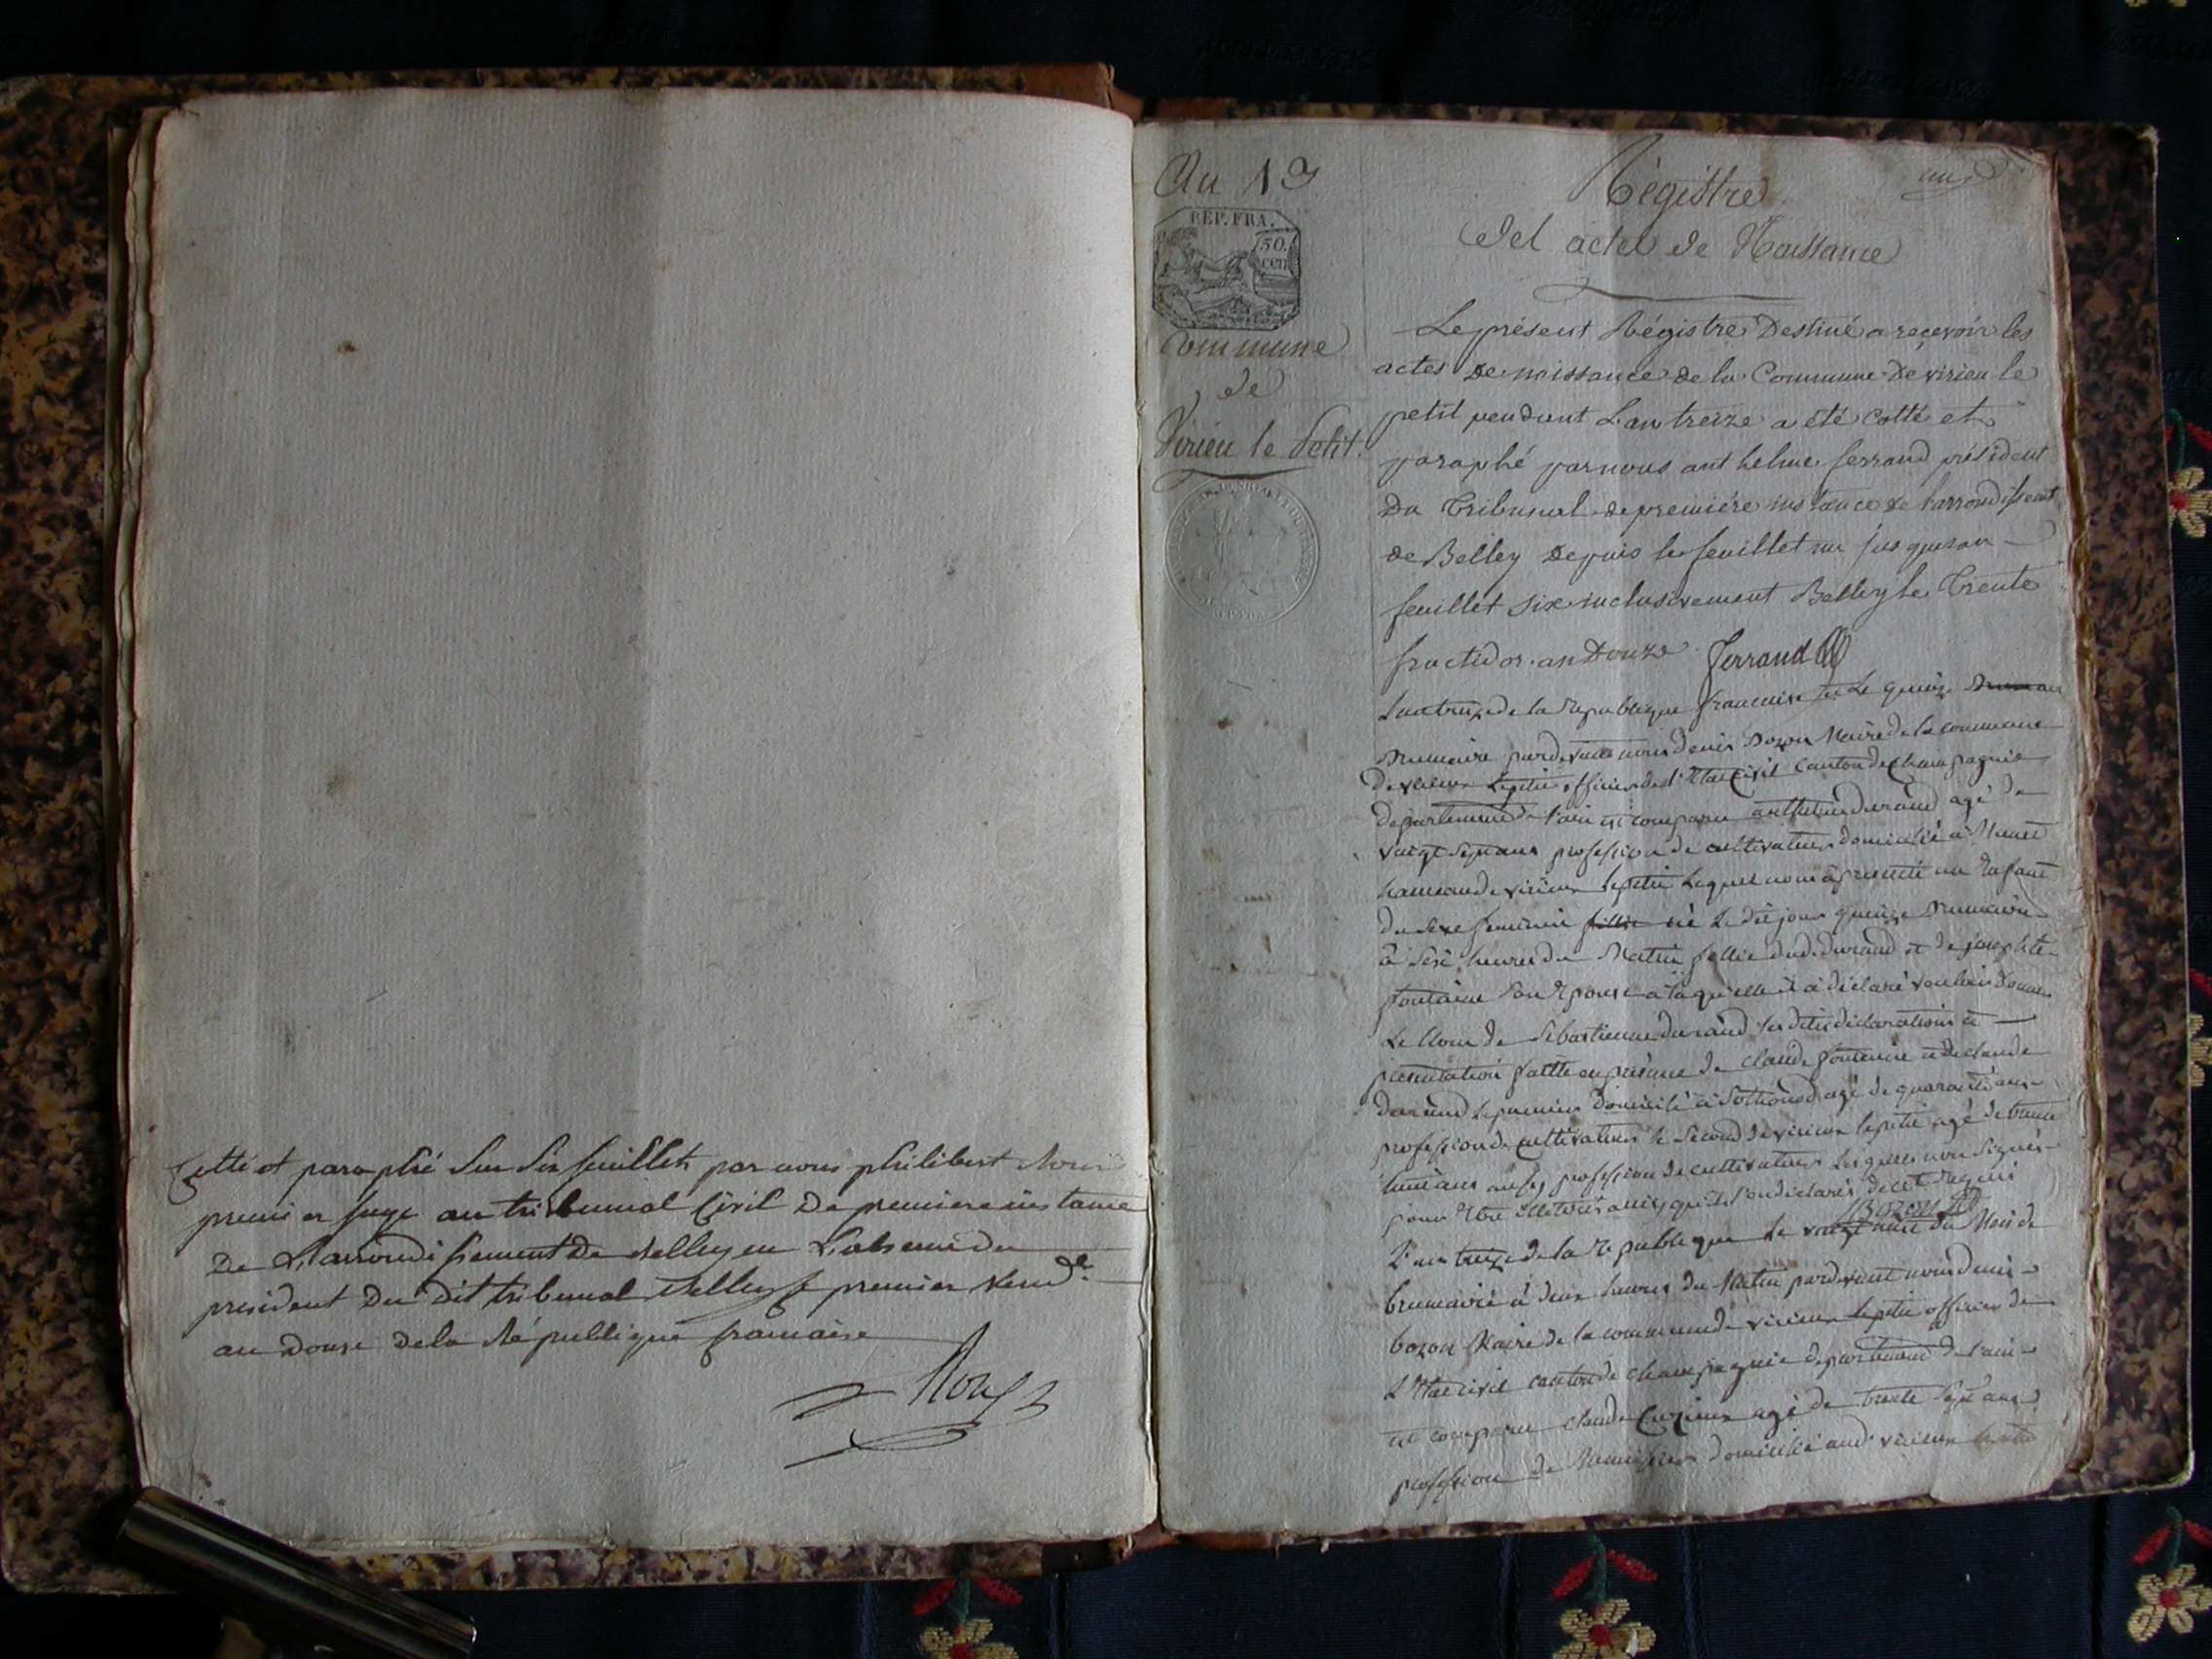 Cotté et paraphé sur six feuillets par nous philibert
premier juge au tribunal Civil De premiere instance
De L'arrondissement De Belley en L'absence du
president Du Dit tribunal Belley le premier Vend.re
an Douze De la République francaise
An 13
REP. FRA.
50. cen
Commune
de
Virieu le Petit.
un
Régistre
des actes de Naissance
Le présent Régistre Destiné a recevoir les
actes De naissance de la Commune De virieu le
petit pendant L'an treize a été cotté et
paraphé par nous anthelme ferrand président
Du Tribunal de premiére instance de l'arrondissemt
de Belley Depuis le feuillet un jusques au
feuillet six inclusivement Belley le Trente
fructidor an Douze Ferrand
L'an treize de la republique francaise et le quinze
Brumaire pardevant nous denis Bozon Maire de la commune
de virieux lepetit officier de l'Etat Civil Canton de champagnie
departement de l'ain est comparu anthelme durand agé de
vaigt sept ans profession de cultivateur domicilié à
hameau de virieux lepetit lequel nous à presenté un Enfant
du sexe feminin née Le dit jour quinze Brumaire
à six heures du Matin fillie dud. durand et de josephte
fontaine son Epouse à laquelle il à déclaré vouloir donner
Le Nom de Sebastienne durand les dites déclarations et
presentation faitte en presence de claude fontaine et de claude
durand le premier domicilié à Sothonod agé de quarante ans
profession de cultivateur le second de virieux lepetit agé de trante
huit ans aussy profession de cultivateur Lesquels non signés
pour Etre illetérés ainsy qu'ils l'on déclarés de ce Requis
Bozon
L'an treize de la republique le vaigt neuf du Mois de
brumaire à deux heures du Matin pardevant nous denis
bozon Maire de la commune de virieux lepetit officier de
L'Etat civil canton de champagnie departement de l'ain
est comparu claude Cuzieux agé de trente sept ans
profession de Menuisier domicilié aud. virieux lepetit